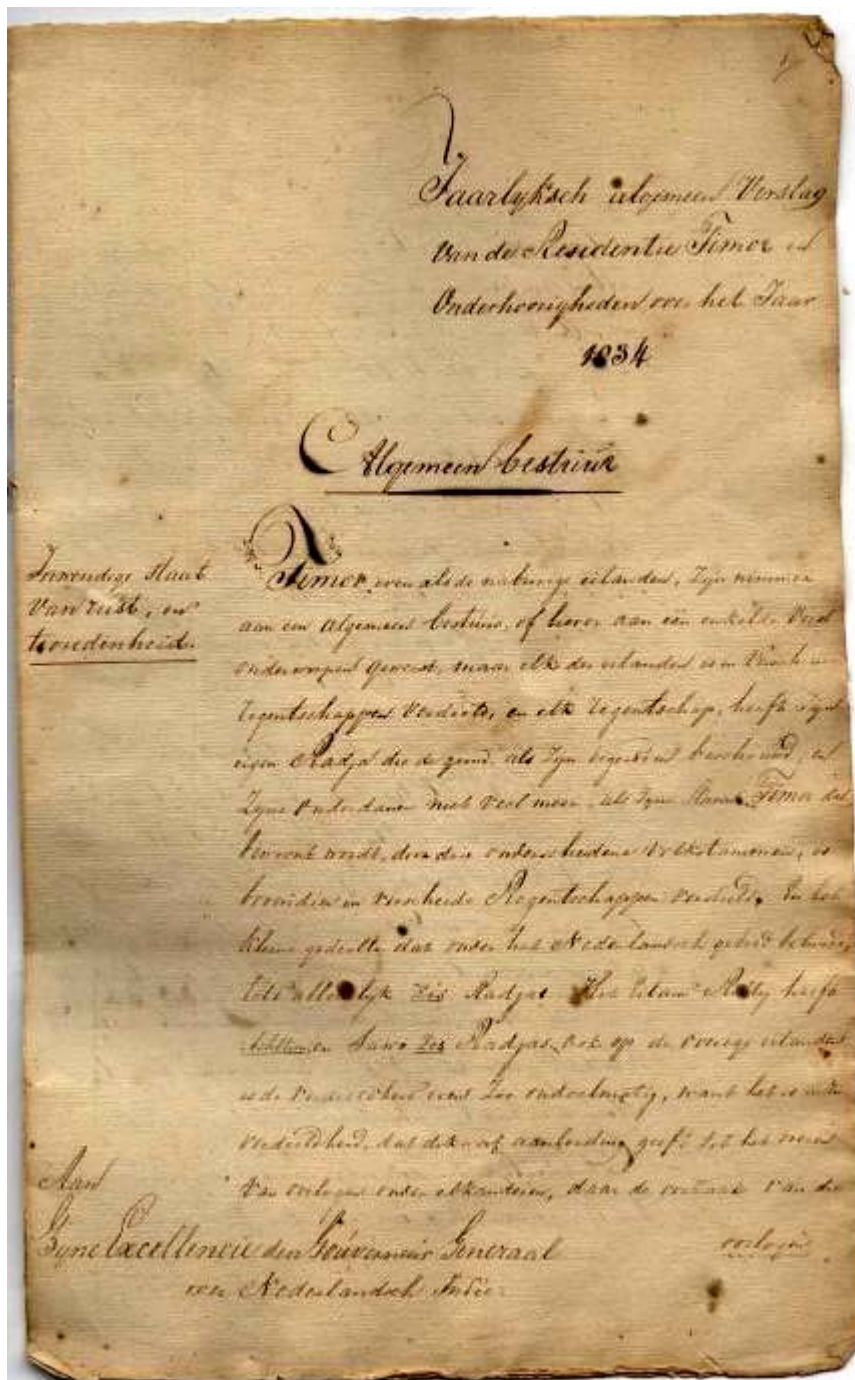 Jaarlyksch algemeen Verslag
van de Residentie Timor en
Onderhoorigheden over het Jaar
1834
Algemeen bestuur
Inwendige staat
van rust, en
tevredenheid
Timor, even als de naburige eilanden, zyn nimmer
aan een algemeen bestuur, of liever aan een enkelde Vorst
onderworpen geweest, maar elk der eilanden is in
regentschappen verdeeld, en elk regentschap, heeft zyn
eigen Radja die de grond als zyn eigendom beschouwd, en
zyne onderdanen niet veel meer, als zyne slaven. Timor dat
bewoond wordt, door drie onderscheidene volkstammen, is
bovendien in verscheide Regentschappen verdeeld. En het
kleine gedeelte dat onder het Nederlandsch gebied behoord,
telt alleenlyk zes Radjas. Het Eiland Rotty heeft
achttien en Sawo zes Radjas, ook op de overige eilanden
is de verdeeldheid even zoo ondoelmatig, want het is deze
verdeeldheid, dat dikwerf aanleiding geeft tot het voeren
van oorlogen onder elkanderen, daar de oorzaak van die
oorlogen
Aan
Zyne Excellencie den Gouverneur Generaal
over Nederlandsch Indie